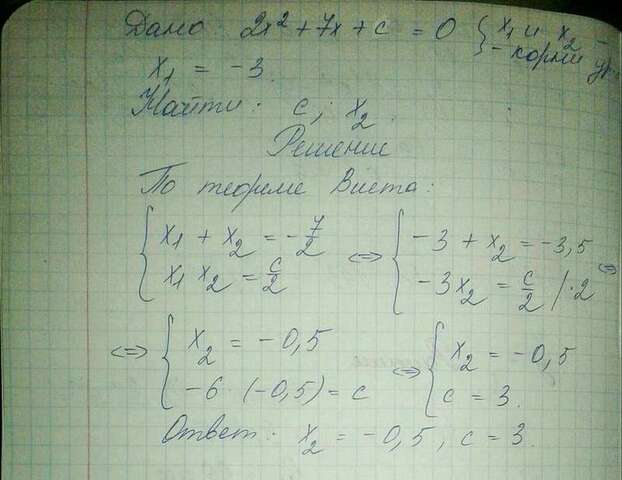 Дано 2x² + 7x + c = 0 { x₁ и x₂ –
– корни ур.
x₁ = -3.
Найти: c; x₂.
Решение
По теореме Виета:
{ x₁ + x₂ = -7/2 <=> { -3 + x₂ = -3,5
{ x₁ x₂ = c/2 { -3x₂ = c/2 / ·2 <=>
<=> { x₂ = -0,5 <=> { x₂ = -0,5
{ -6 · (-0,5) = c { c = 3.
Ответ: x₂ = -0,5, c = 3.